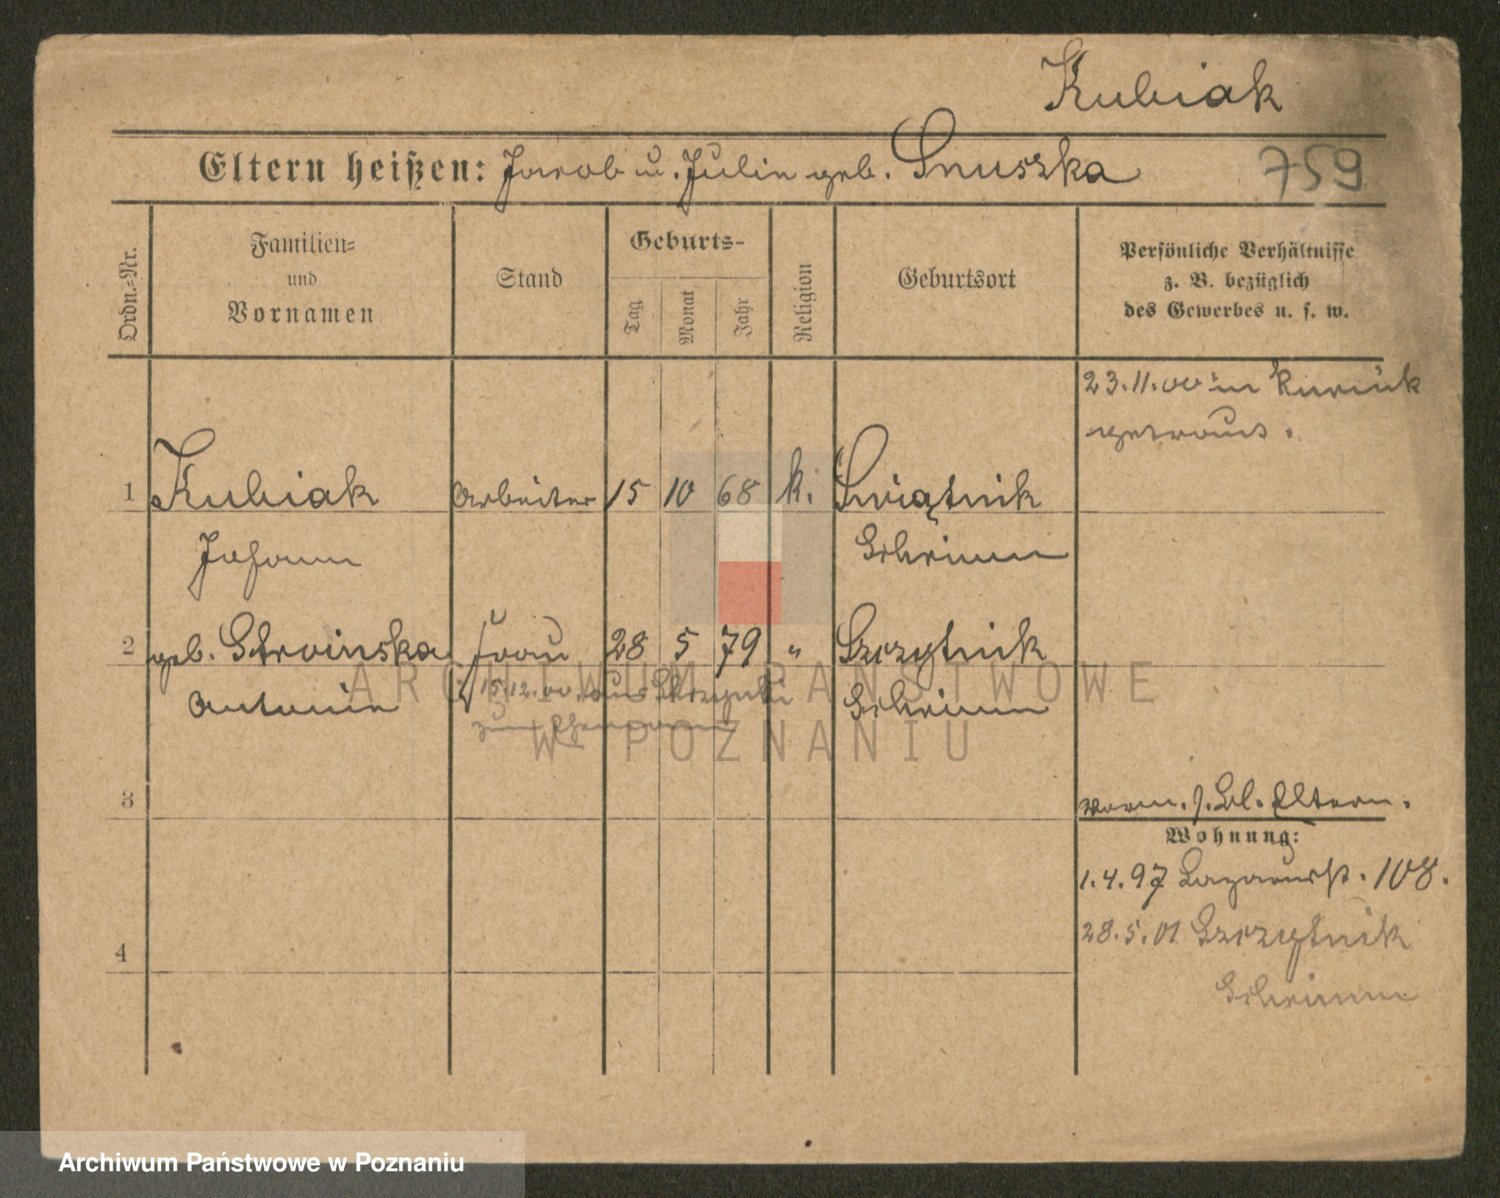 Kubiak
Eltern heißen: Jacob u. Julie geb. Snuszka
759
Ordn.-Nr.
Familien- und Vornamen
Stand
Geburts-
Tag
Monat
Jahr
Religion
Geburtsort
Persönliche Verhältnisse
z. B. bezüglich
des Gewerbes u. s. w.
23.11.00 in Kurnik
getraut.
1 Kubiak Arbeiter 15 10 68 k. Swiątnik
Johann Schrimm
2 geb. Stroinska Frau 28 5 79 " Szczytnik
Antonie 15.12.00. aus Schrimm
zum Ehemann
3
vorm. s. Bl. Eltern.
Wohnung:
1.4.97 Lazarusst. 108.
28.5.01 Szczytnik
4
Schrimm
ARCHIWUM PAŃSTWOWE
W POZNANIU
Archiwum Państwowe w Poznaniu